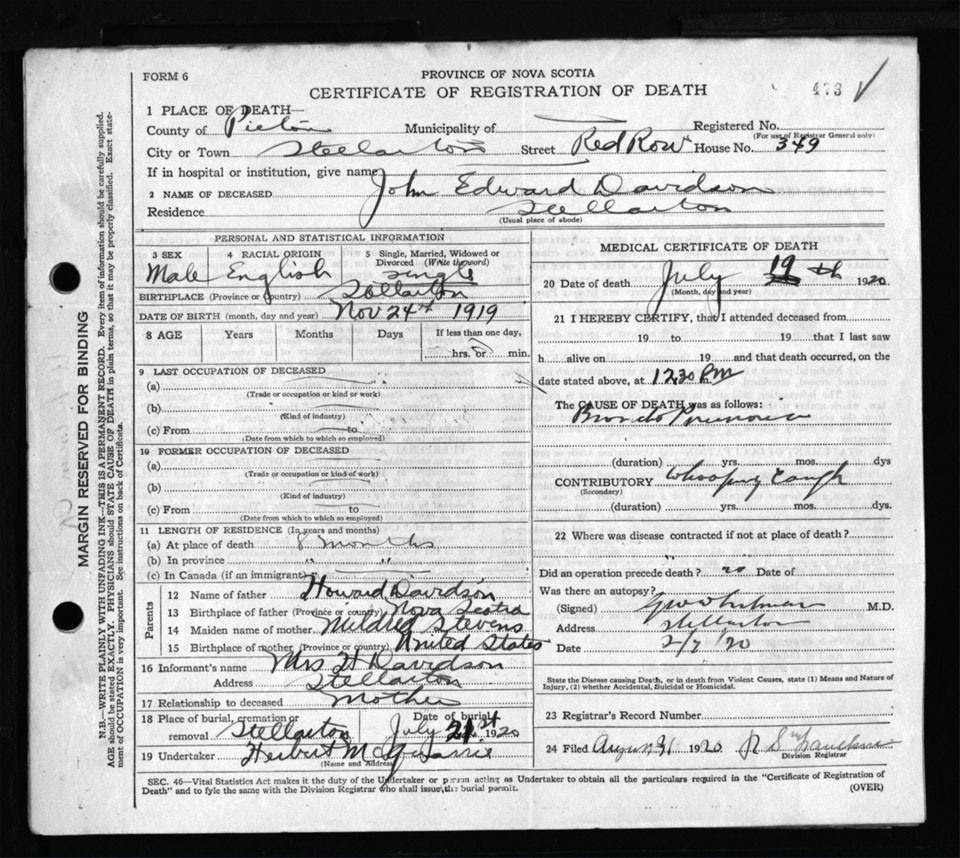 FORM 6
PROVINCE OF NOVA SCOTIA
CERTIFICATE OF REGISTRATION OF DEATH
473 ✓
1 PLACE OF DEATH—
County of Pictou Municipality of Registered No.
(For use of Registrar General only)
City or Town Stellarton Street Red Row House No. 349
If in hospital or institution, give name
2 NAME OF DECEASED John Edward Davidson
Residence Stellarton
(Usual place of abode)
PERSONAL AND STATISTICAL INFORMATION
3 SEX 4 RACIAL ORIGIN 5 Single, Married, Widowed or Divorced (Write the word)
Male English Single
BIRTHPLACE (Province or country) Stellarton
DATE OF BIRTH (month, day and year) Nov 24th 1919
8 AGE Years Months Days If less than one day,
hrs. or min.
9 LAST OCCUPATION OF DECEASED
(a)
(Trade or occupation or kind of work)
(b)
(Kind of industry)
(c) From to
(Date from which to which so employed)
10 FORMER OCCUPATION OF DECEASED
(a)
(Trade or occupation or kind of work)
(b)
(Kind of industry)
(c) From to
(Date from which to which so employed)
11 LENGTH OF RESIDENCE (In years and months)
(a) At place of death 8 months
(b) In province " "
(c) In Canada (if an immigrant)
Parents
12 Name of father Howard Davidson
13 Birthplace of father (Province or country) Nova Scotia
14 Maiden name of mother Mildred Stevens
15 Birthplace of mother (Province or country) United States
16 Informant's name Mrs H Davidson
Address Stellarton
17 Relationship to deceased Mother
18 Place of burial, cremation or removal Stellarton Date of burial July 21st 1920
19 Undertaker Herbert
(Name and Address)
MEDICAL CERTIFICATE OF DEATH
20 Date of death July 19 th 1920
(Month, day and year)
21 I HEREBY CERTIFY, that I attended deceased from
19 to 19 that I last saw
h alive on 19 and that death occurred, on the
date stated above, at 12.30 P.M.
The CAUSE OF DEATH was as follows:
Broncho Pneumonia
(duration) yrs. mos. dys
CONTRIBUTORY Whooping Cough
(Secondary)
(duration) yrs. mos. dys.
22 Where was disease contracted if not at place of death?
Did an operation precede death? no Date of
Was there an autopsy?
(Signed) M.D.
Address Stellarton
Date 2/7/20
State the Disease causing Death, or in death from Violent Causes, state (1) Means and Nature of
Injury, (2) whether Accidental, Suicidal or Homicidal.
23 Registrar's Record Number
24 Filed 1920
Division Registrar
SEC. 46—Vital Statistics Act makes it the duty of the Undertaker or person acting as Undertaker to obtain all the particulars required in the "Certificate of Registration of
Death" and to fyle the same with the Division Registrar who shall issue the burial permit.
(OVER)
MARGIN RESERVED FOR BINDING
N.B.—WRITE PLAINLY WITH UNFADING INK—THIS IS A PERMANENT RECORD. Every item of information should be carefully supplied.
AGE should be stated EXACTLY. PHYSICIANS should STATE CAUSE OF DEATH in plain terms, so that it may be properly classified. Exact state-
ment of OCCUPATION is very important. See instructions on back of Certificate.